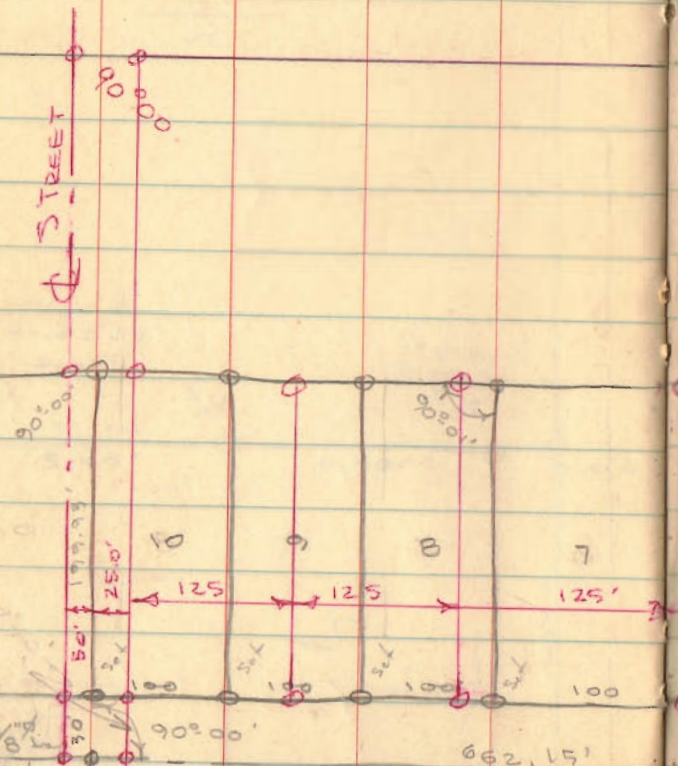 90°00'
℄ STREET
90°00'
90°01'
199.93'
10
9
8
7
25.0'
125
125
125'
50'
Set
Set
Set
Set
100
100
100
100
30
90°00'
662.15'